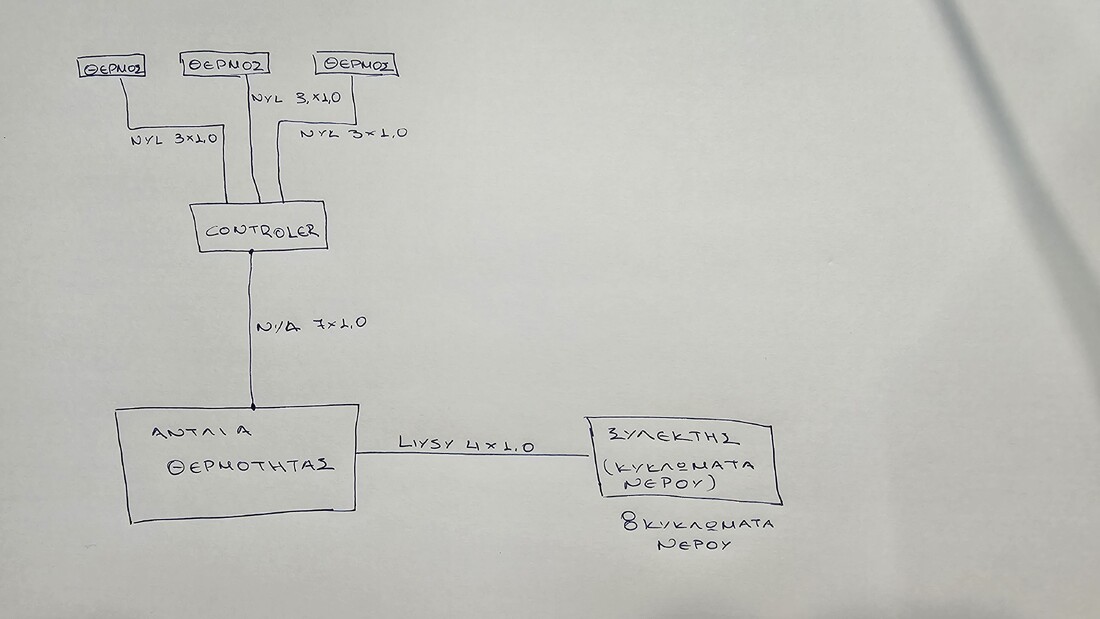 ΘΕΡΜΟΣ ΘΕΡΜΟΣ ΘΕΡΜΟΣ
NYL 3×1,0
NYL 3×1,0
NYL 3×1,0
CONTROLER
NYA 7×1,0
ΑΝΤΛΙΑ
ΘΕΡΜΟΤΗΤΑΣ
LIYSY 4×1.0
ΣΥΛΕΚΤΗΣ
(ΚΥΚΛΩΜΑΤΑ
ΝΕΡΟΥ)
8 ΚΥΚΛΩΜΑΤΑ
ΝΕΡΟΥ